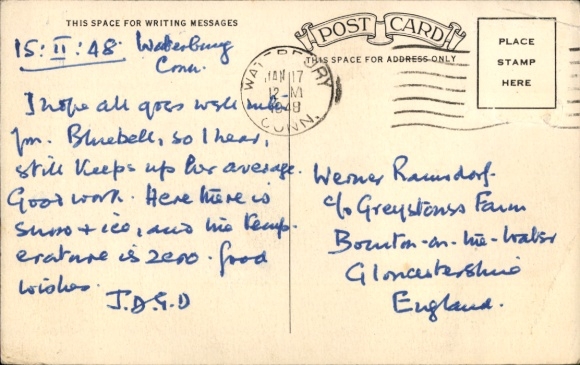 THIS SPACE FOR WRITING MESSAGES
POST CARD
THIS SPACE FOR ADDRESS ONLY
PLACE
STAMP
HERE
WATERBURY
JAN 17
12 M
1948
CONN.
15: II : 48. Waterbury
Conn.
I hope all goes well with
yr. Bluebell, so I hear,
still keeps up her average.
Good work. Here there is
snow + ice, and the temp-
erature is zero. Good
wishes.
J.D.G.D
Werner Ramsdorf
c/o Greystones Farm
Bourton-on-the-Water
Gloucestershire
England.